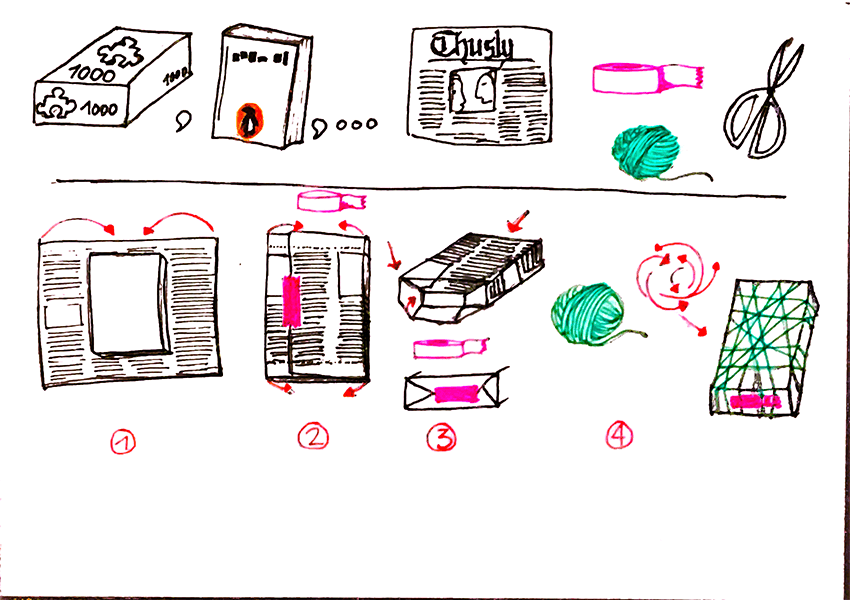 1000
1000
1000
Thusly
1
2
3
4